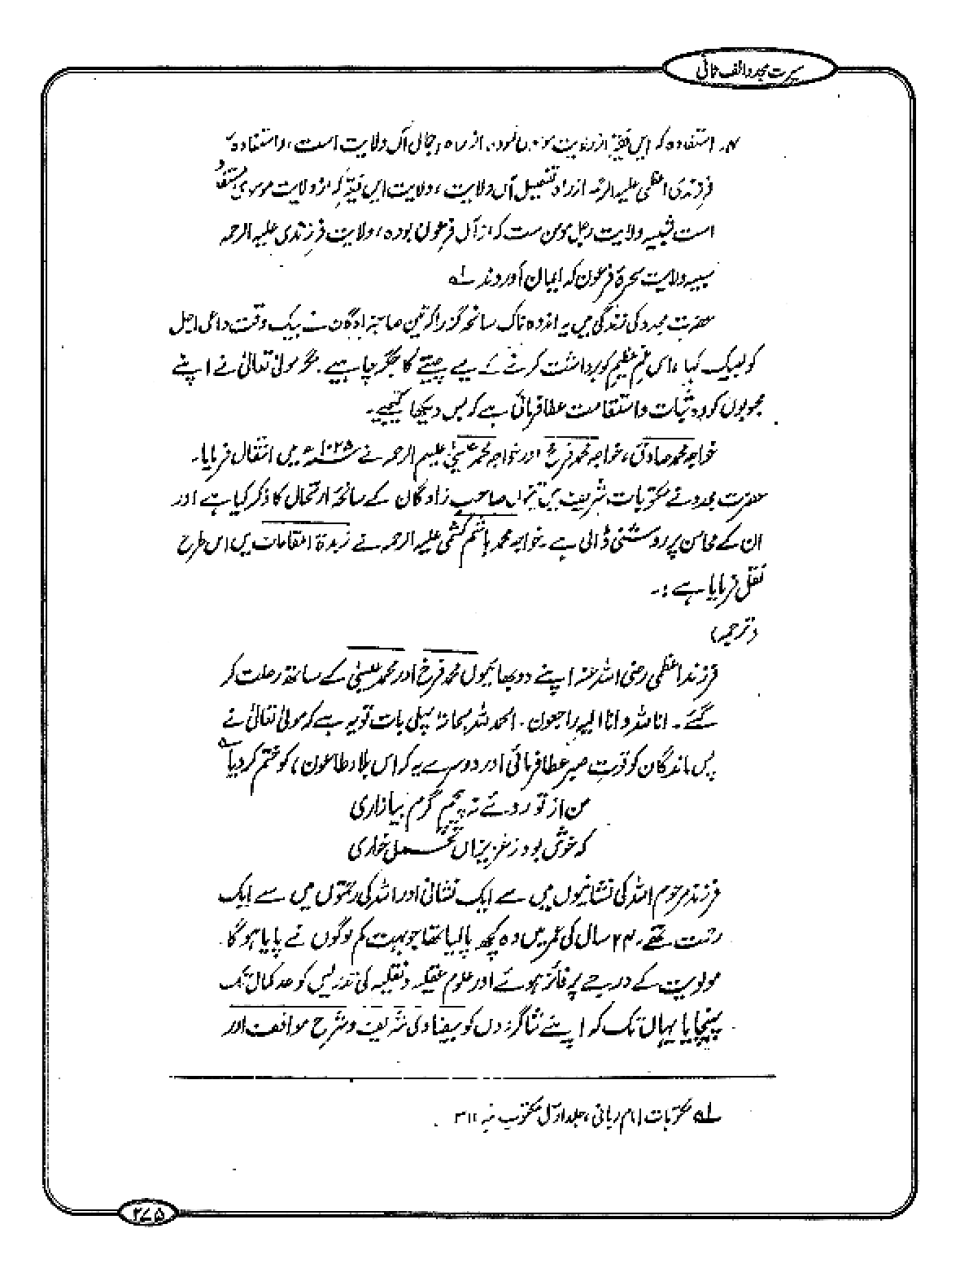 سیرت مجدد الف ثانی
۷۔ استفادہ کہ ایں فقیر از ولایت موسوی نمودہ از راہ اجمالی آں ولایت است، و استفادہ
فرزندی اعظمی علیہ الرحمہ از راہ تفصیل آں ولایت، ولایت ایں فقیر کہ از ولایت موسوی مستفاد
است شبیہ ولایت رجل مومن ست کہ از آل فرعون بودہ، ولایت فرزندی علیہ الرحمہ
شبیہ ولایت سحرۂ فرعون کہ ایمان آوردند لہ
حضرت مجدد کی زندگی میں یہ اندوہ ناک سانحہ گزرا کہ تین صاحبزادگان نے بیک وقت داعی اجل
کو لبیک کہا، اس غم عظیم کو برداشت کرنے کے لیے چیتے کا جگر چاہیے۔ مگر مولیٰ تعالیٰ نے اپنے
محبوبوں کو وہ ثبات و استقامت عطا فرمائی ہے کہ بس دیکھا کیجیے۔
خواجہ محمد صادق، خواجہ محمد فرخ اور خواجہ محمد عیسیٰ علیہم الرحمہ نے ۱۰۲۵ھ میں انتقال فرمایا۔
حضرت مجدد نے مکتوبات شریف میں تینوں صاحب زادگان کے سانحۂ ارتحال کا ذکر کیا ہے اور
ان کے محاسن پر روشنی ڈالی ہے۔ خواجہ محمد ہاشم کشمی علیہ الرحمہ نے زبدۃ المقامات میں اس طرح
نقل فرمایا ہے:۔
(ترجمہ)
فرزند اعظمی رضی اللہ عنہ اپنے دو بھائیوں محمد فرخ اور محمد عیسیٰ کے ساتھ رحلت کر
گئے۔ انا للہ و انا الیہ راجعون۔ الحمد للہ سبحانہ پہلی بات تو یہ ہے کہ مولیٰ تعالیٰ نے
پس ماندگان کو قوت صبر عطا فرمائی اور دوسرے یہ کہ اس بلا (طاعون) کو ختم کر دیا
من از تو روئے نہ پیچم گرم بیازاری
کہ خوش بود ز عزیزاں تحمل خواری
فرزند مرحوم اللہ کی نشانیوں میں سے ایک نشانی اور اللہ کی رحمتوں میں سے ایک
رحمت تھے۔ ۲۴ سال کی عمر میں وہ کچھ پا لیا تھا جو بہت کم لوگوں نے پایا ہو گا۔
مولویت کے درجے پر فائز ہوئے اور علوم عقلیہ و نقلیہ کی تدریس کو حد کمال تک
پہنچایا یہاں تک کہ اپنے شاگردوں کو بیضاوی شریف و شرح مواقف اور
لہ مکتوبات امام ربانی، جلد اول مکتوب نمبر ۳۱۱۔
۲۷۵